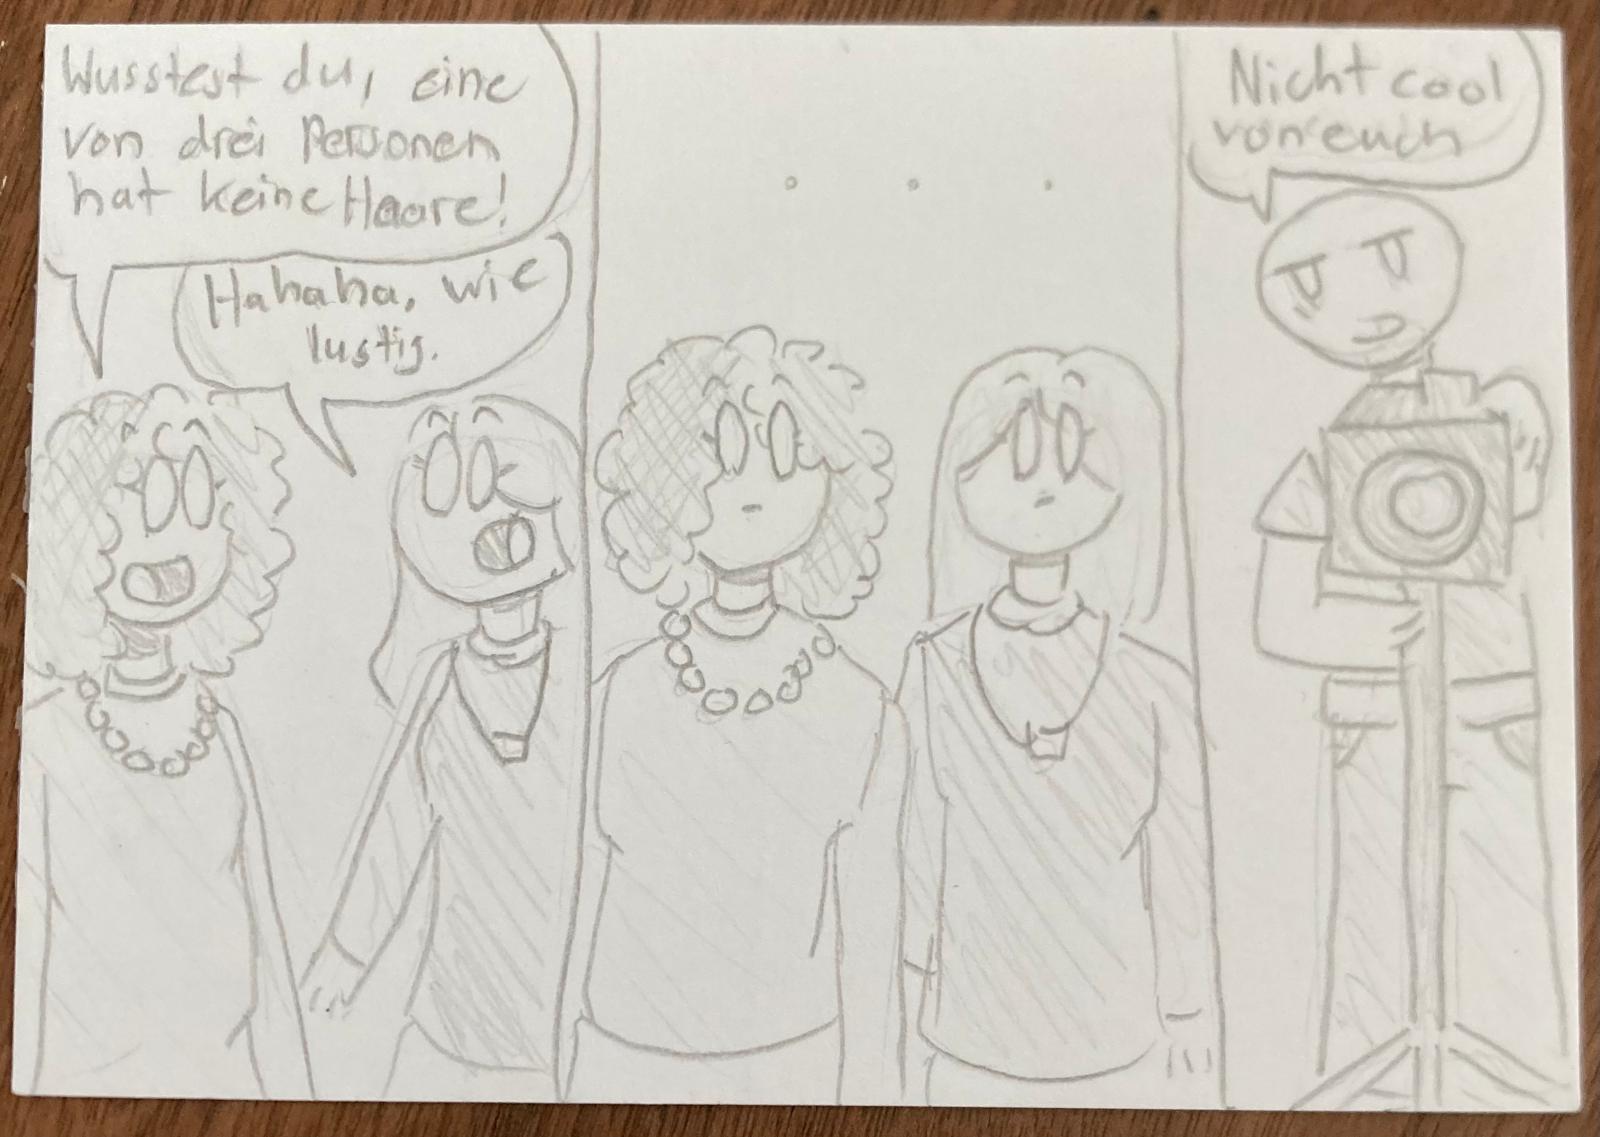 Wusstest du, eine
von drei Personen
hat keine Haare!
Hahaha, wie
lustig.
. . .
Nicht cool
von euch